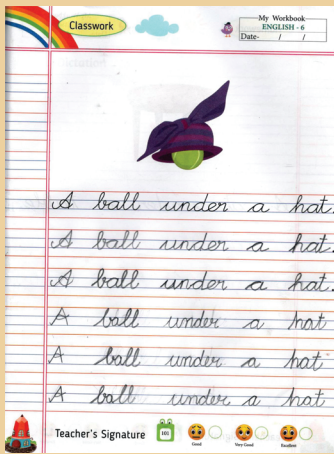 Classwork
My Workbook
ENGLISH - 6
Date- / /
A ball under a hat.
A ball under a hat.
A ball under a hat.
A ball under a hat
A ball under a hat
A ball under a hat
Teacher's Signature 101 Good Very Good Excellent